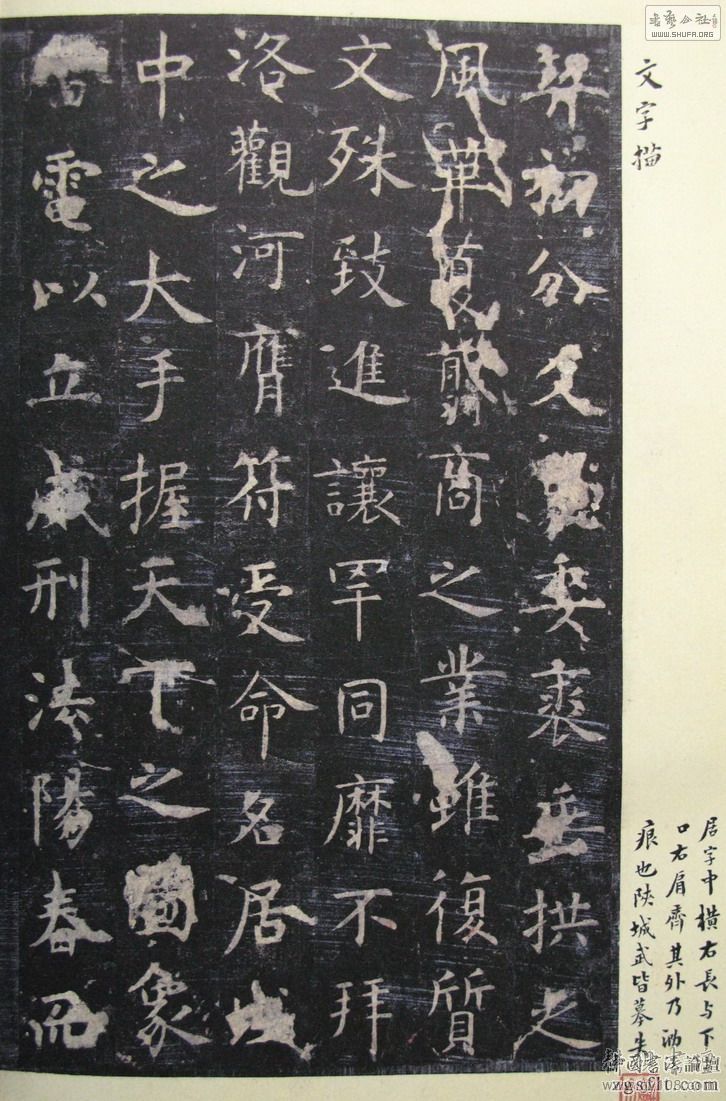 文字描
居字中橫右長与下
口右肩齊其外乃泐
痕也陝城武皆摹失
契初分文委裘垂拱之
風革夏翦商之業雖復質
文殊致進讓罕同靡不拜
洛觀河膺符受命名居域
中之大手握天下之圖象
雷電以立威刑法陽春而
書藝公社
WWW.SHUFA.ORG
中国书法論壇
zgsf10.com